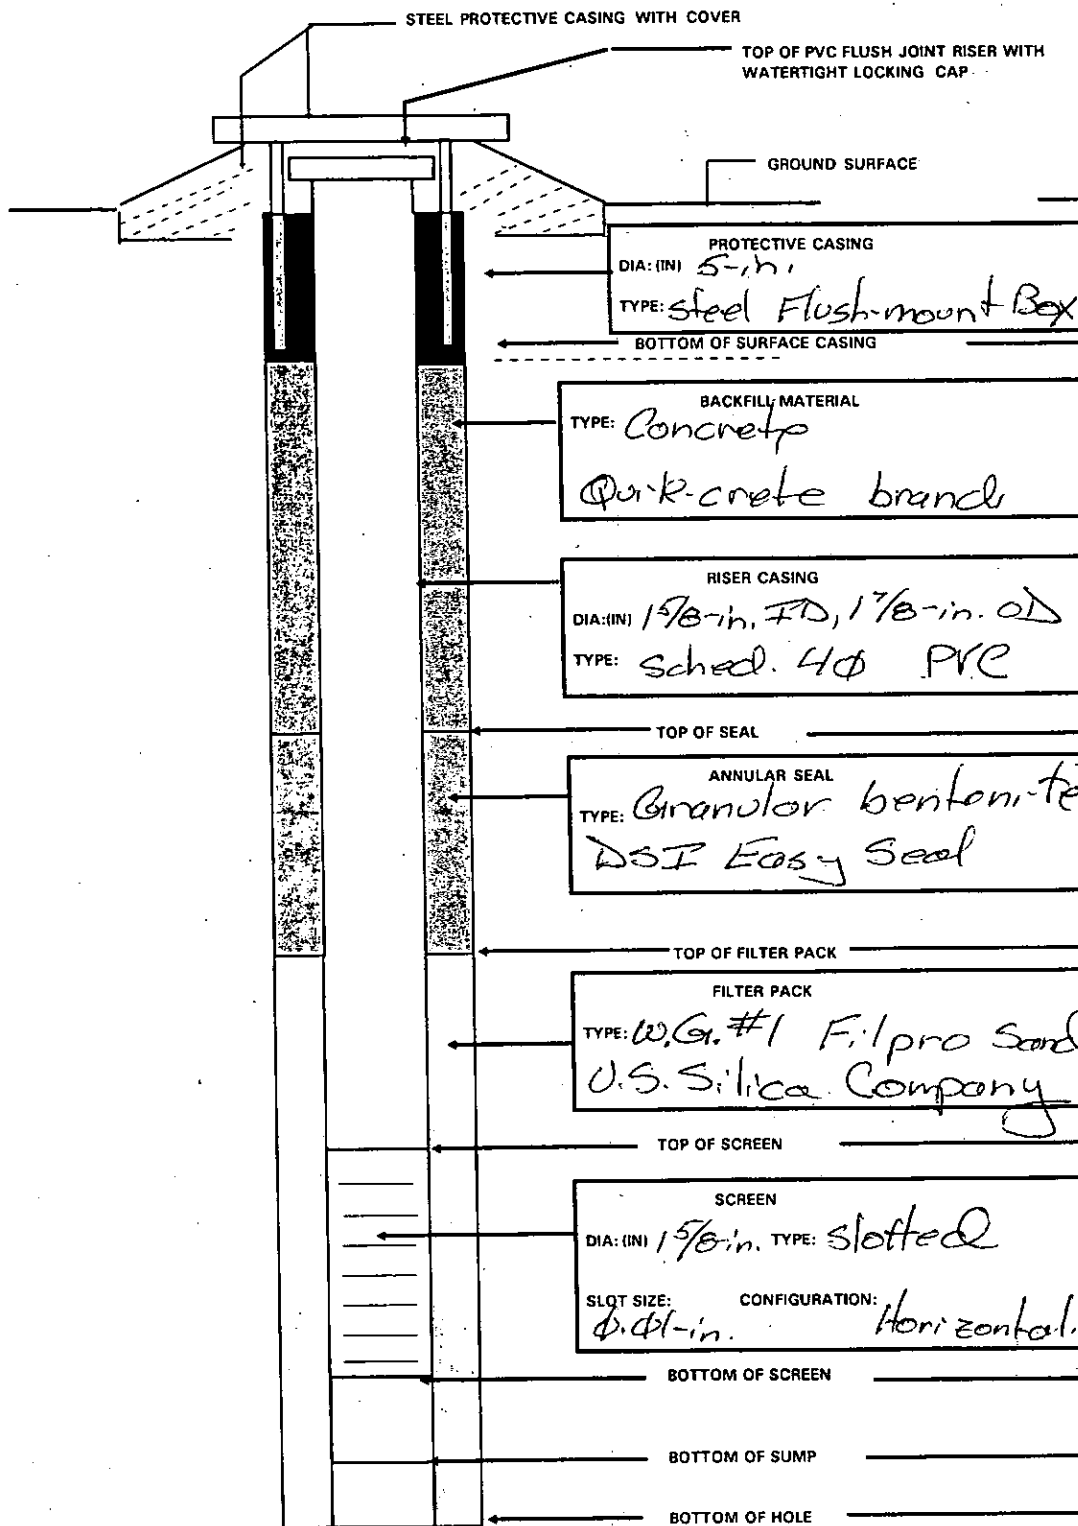 STEEL PROTECTIVE CASING WITH COVER
TOP OF PVC FLUSH JOINT RISER WITH
WATERTIGHT LOCKING CAP
GROUND SURFACE
PROTECTIVE CASING
DIA: (IN) 5-in.
TYPE: Steel Flush-mount Box
BOTTOM OF SURFACE CASING
BACKFILL MATERIAL
TYPE: Concrete
Quik-crete brand
RISER CASING
DIA:(IN) 1 5/8-in. ID, 1 7/8-in. OD
TYPE: Sched. 40 PVC
TOP OF SEAL
ANNULAR SEAL
TYPE: Granular bentonite
DSI Easy Seal
TOP OF FILTER PACK
FILTER PACK
TYPE: W.G. #1 Filpro Sand
U.S. Silica Company
TOP OF SCREEN
SCREEN
DIA: (IN) 1 5/8-in. TYPE: Slotted
SLOT SIZE: CONFIGURATION:
0.01-in. Horizontal.
BOTTOM OF SCREEN
BOTTOM OF SUMP
BOTTOM OF HOLE